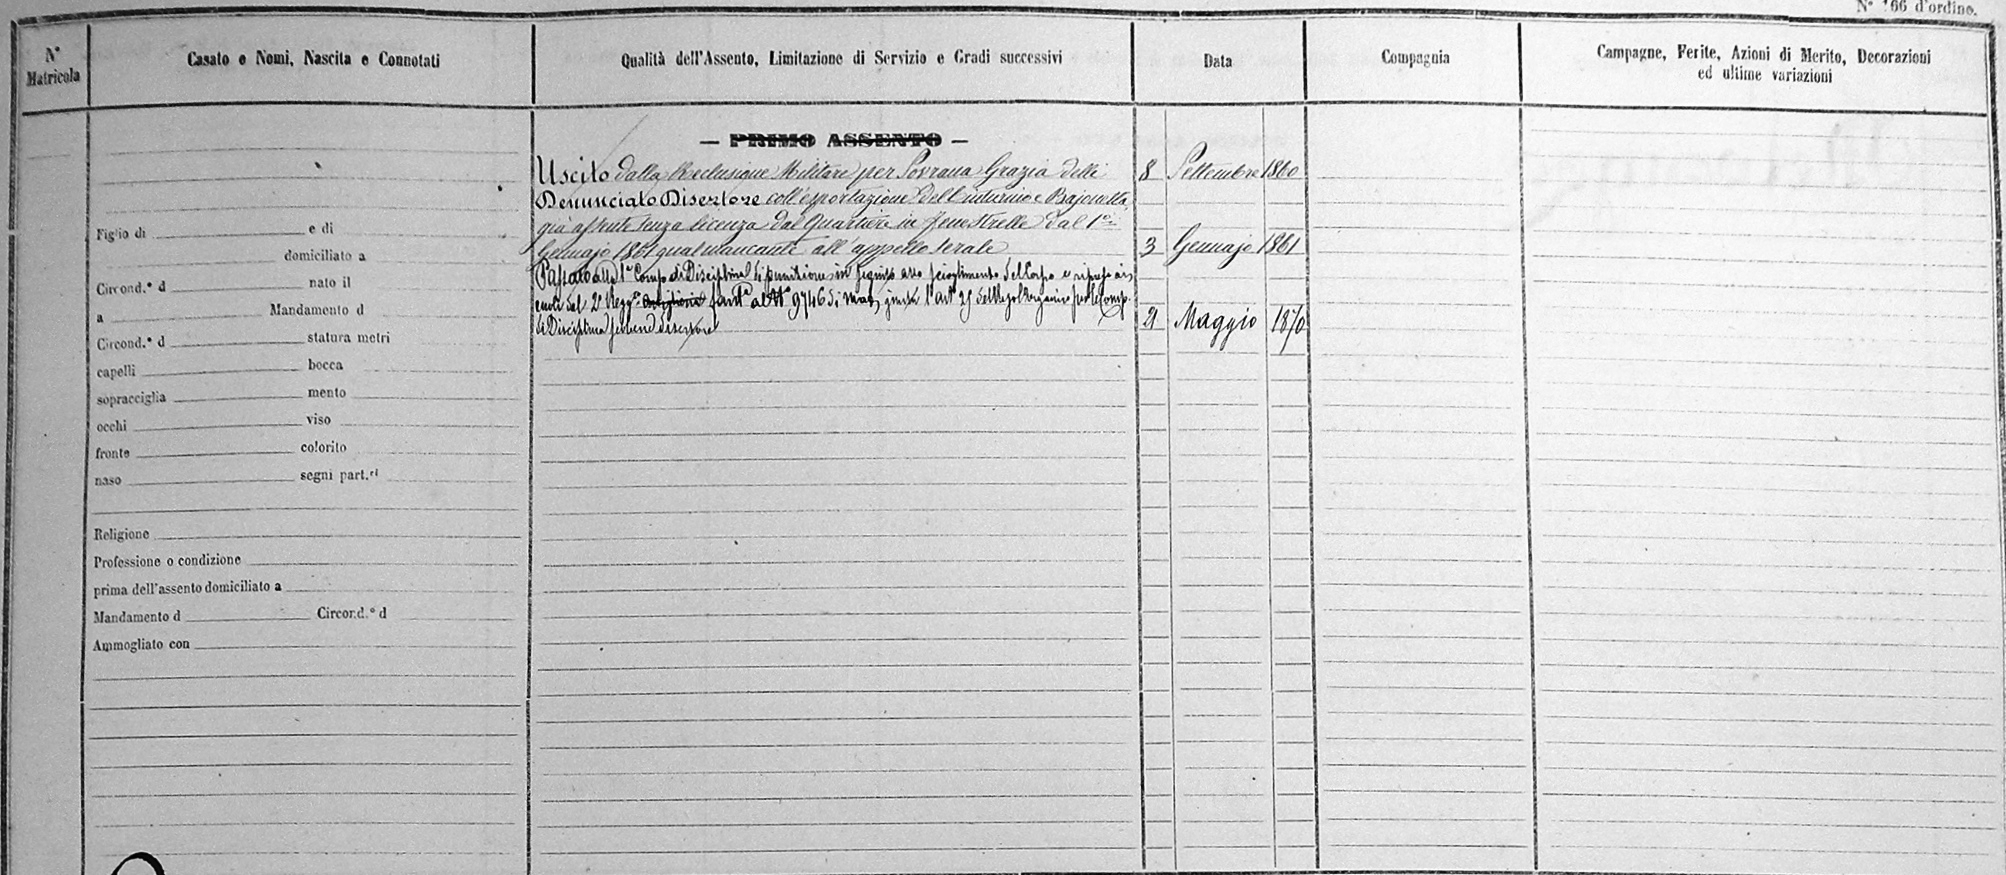 N° 166 d'ordine.
N° Matricola
Casato e Nomi, Nascita e Connotati
Qualità dell'Assento, Limitazione di Servizio e Gradi successivi
Data
Compagnia
Campagne, Ferite, Azioni di Merito, Decorazioni
ed ultime variazioni
— PRIMO ASSENTO —
Uscito dalla Reclusione Militare per Sovrana Grazia delli 8 Settembre 1860
Denunciato Disertore coll'esportazione del Cinturino e Bajonetta,
già assente senza licenza dal Quartiere in Fenestrelle dal 1°
Gennajo 1861 qual mancante all'appello serale 3 Gennajo 1861
Passato alla 1a Comp. di Disciplina di punizione in seguito allo scioglimento del Corpo e ripreso ai
ruoli del 2° Regg. fant. al N° 9746 di mat. l'art. 25 del Regol. organico per le Comp.
di Disciplina sebbene disertore 21 Maggio 1870
Figlio di e di
domiciliato a
Circond.° d nato il
a Mandamento d
Circond.° d statura metri
capelli bocca
sopracciglia mento
occhi viso
fronte colorito
naso segni part.ri
Religione
Professione o condizione
prima dell'assento domiciliato a
Mandamento d Circond.° d
Ammogliato con